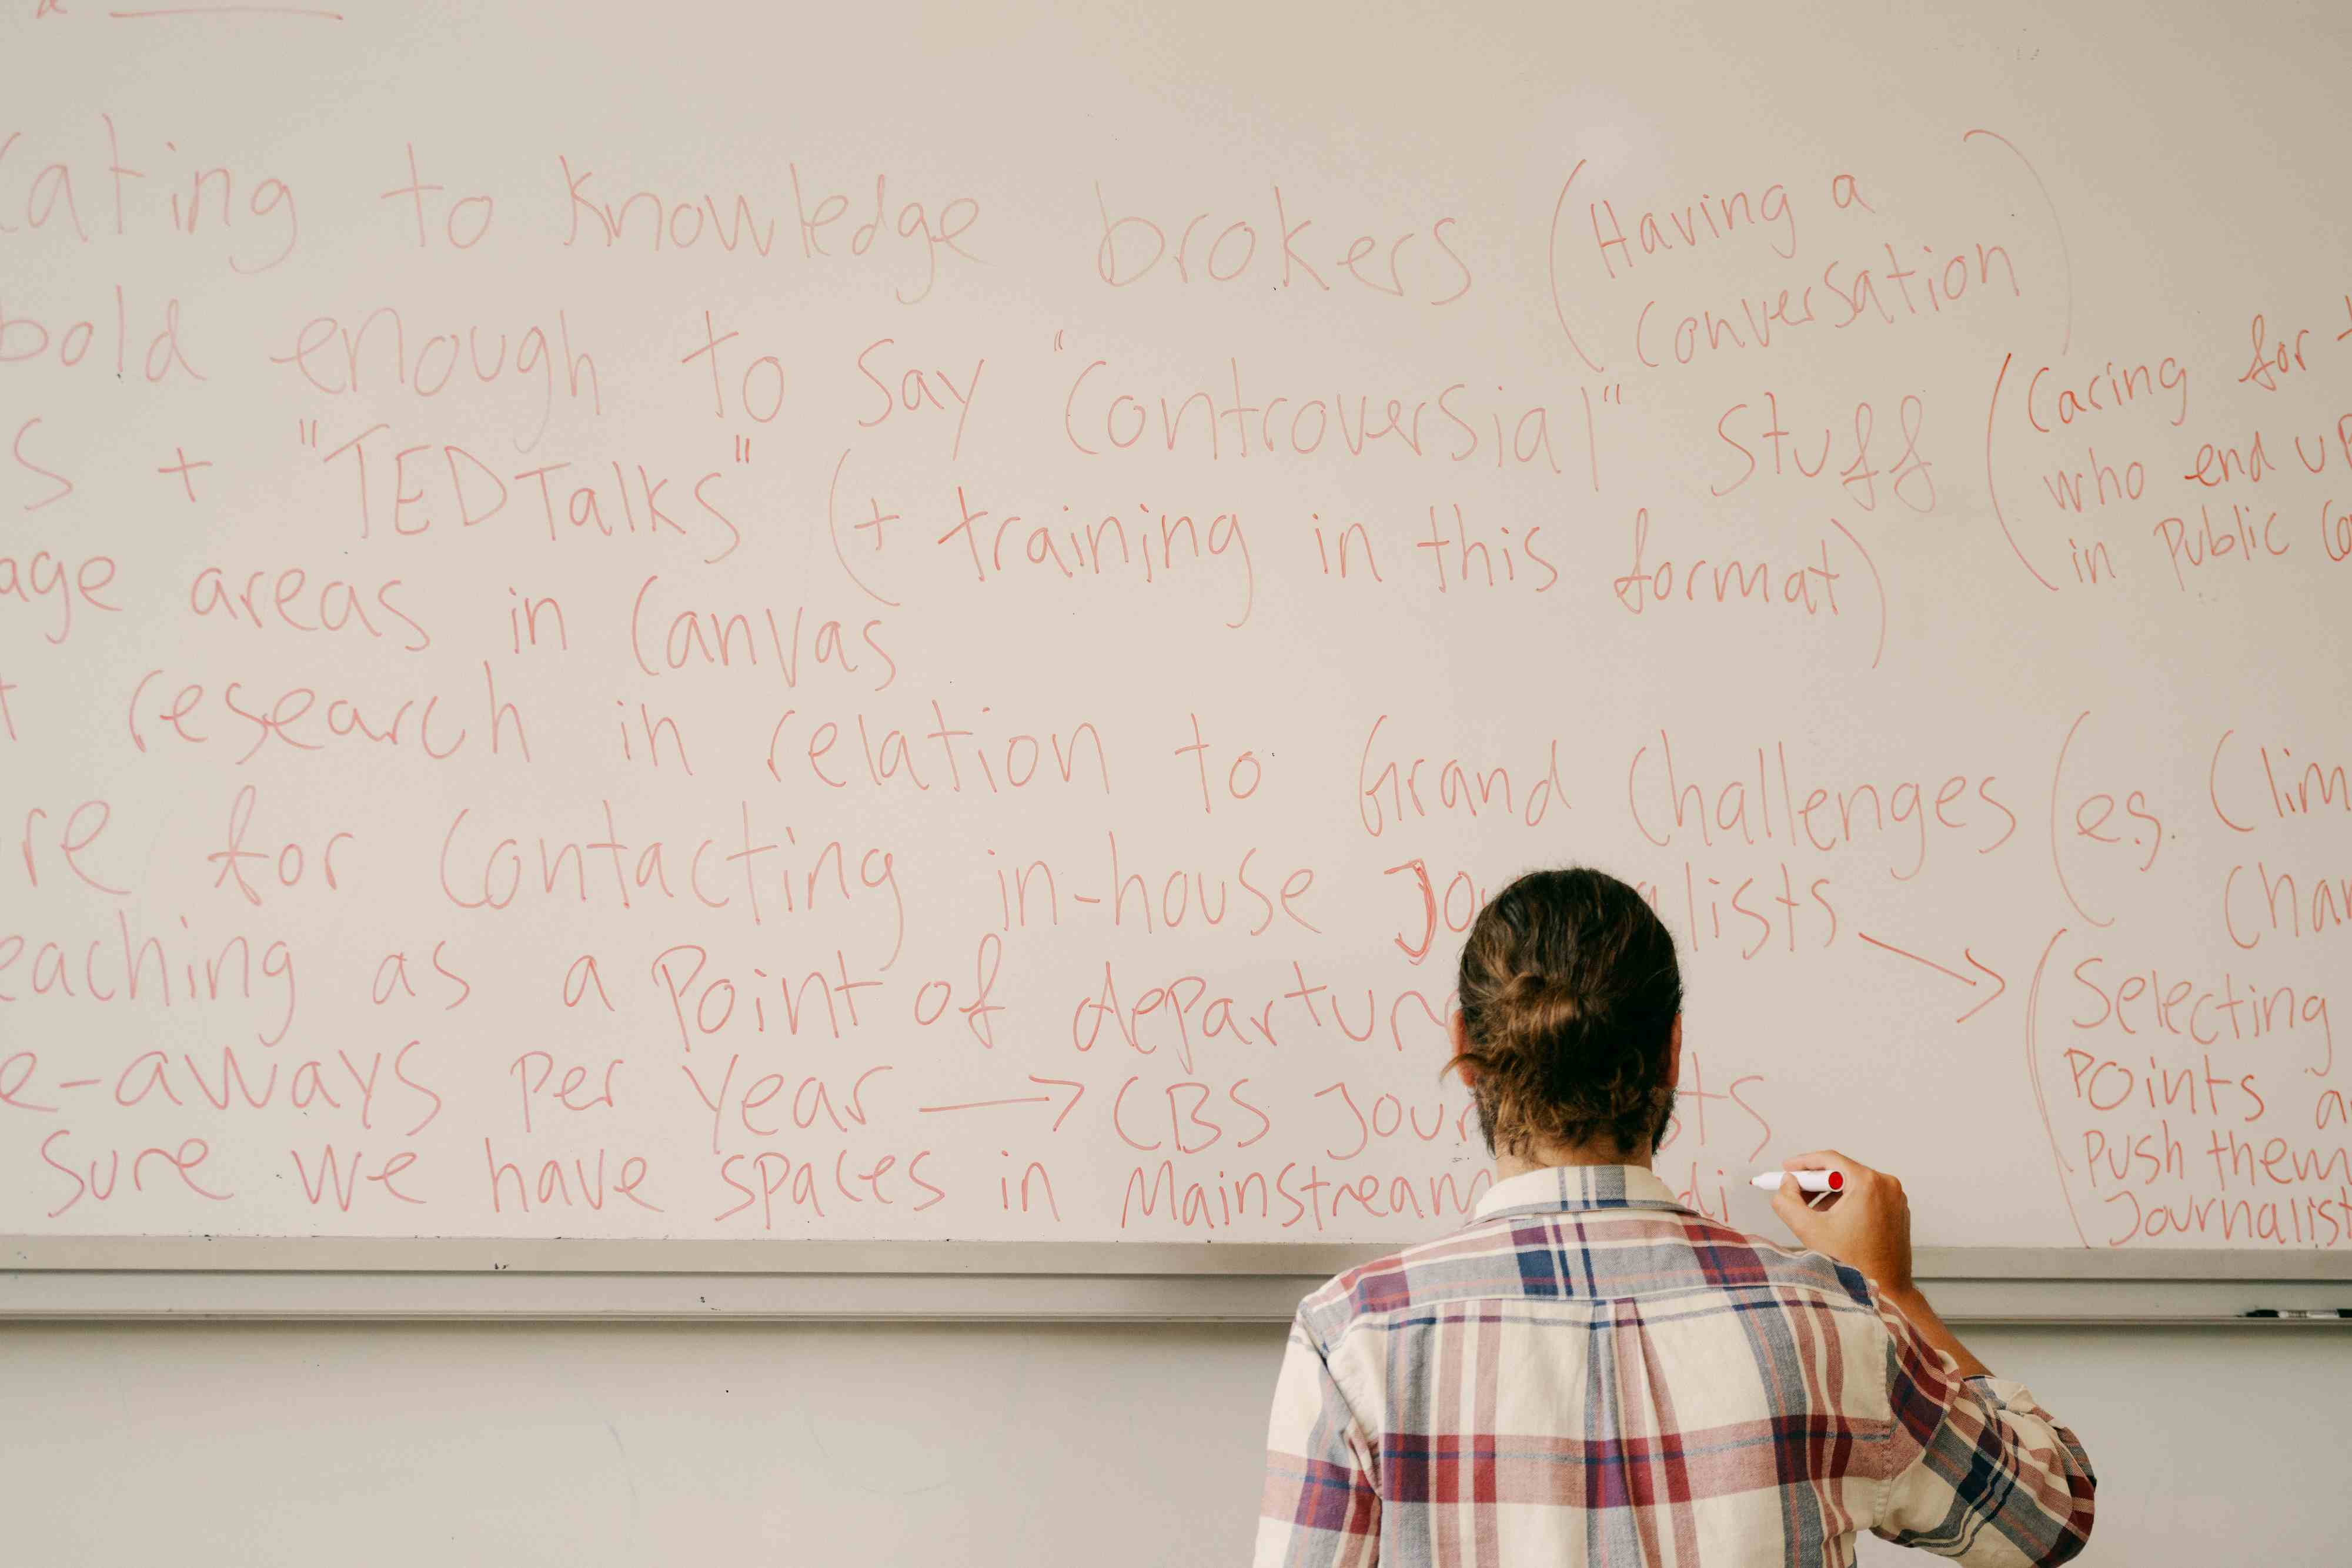 cating to knowledge brokers (Having a
conversation)
bold enough to say "controversial" stuff (Caring for t
who end up
in public co
s + "TEDTalks" (+ training in this format)
age areas in Canvas
t research in relation to Grand Challenges (e.g. Clim
Chan
re for contacting in-house Jo lists →
eaching as a point of departur
(Selecting
points a
push them
Journalist
e-aways per year → CBS Jour sts
sure we have spaces in Mainstream di